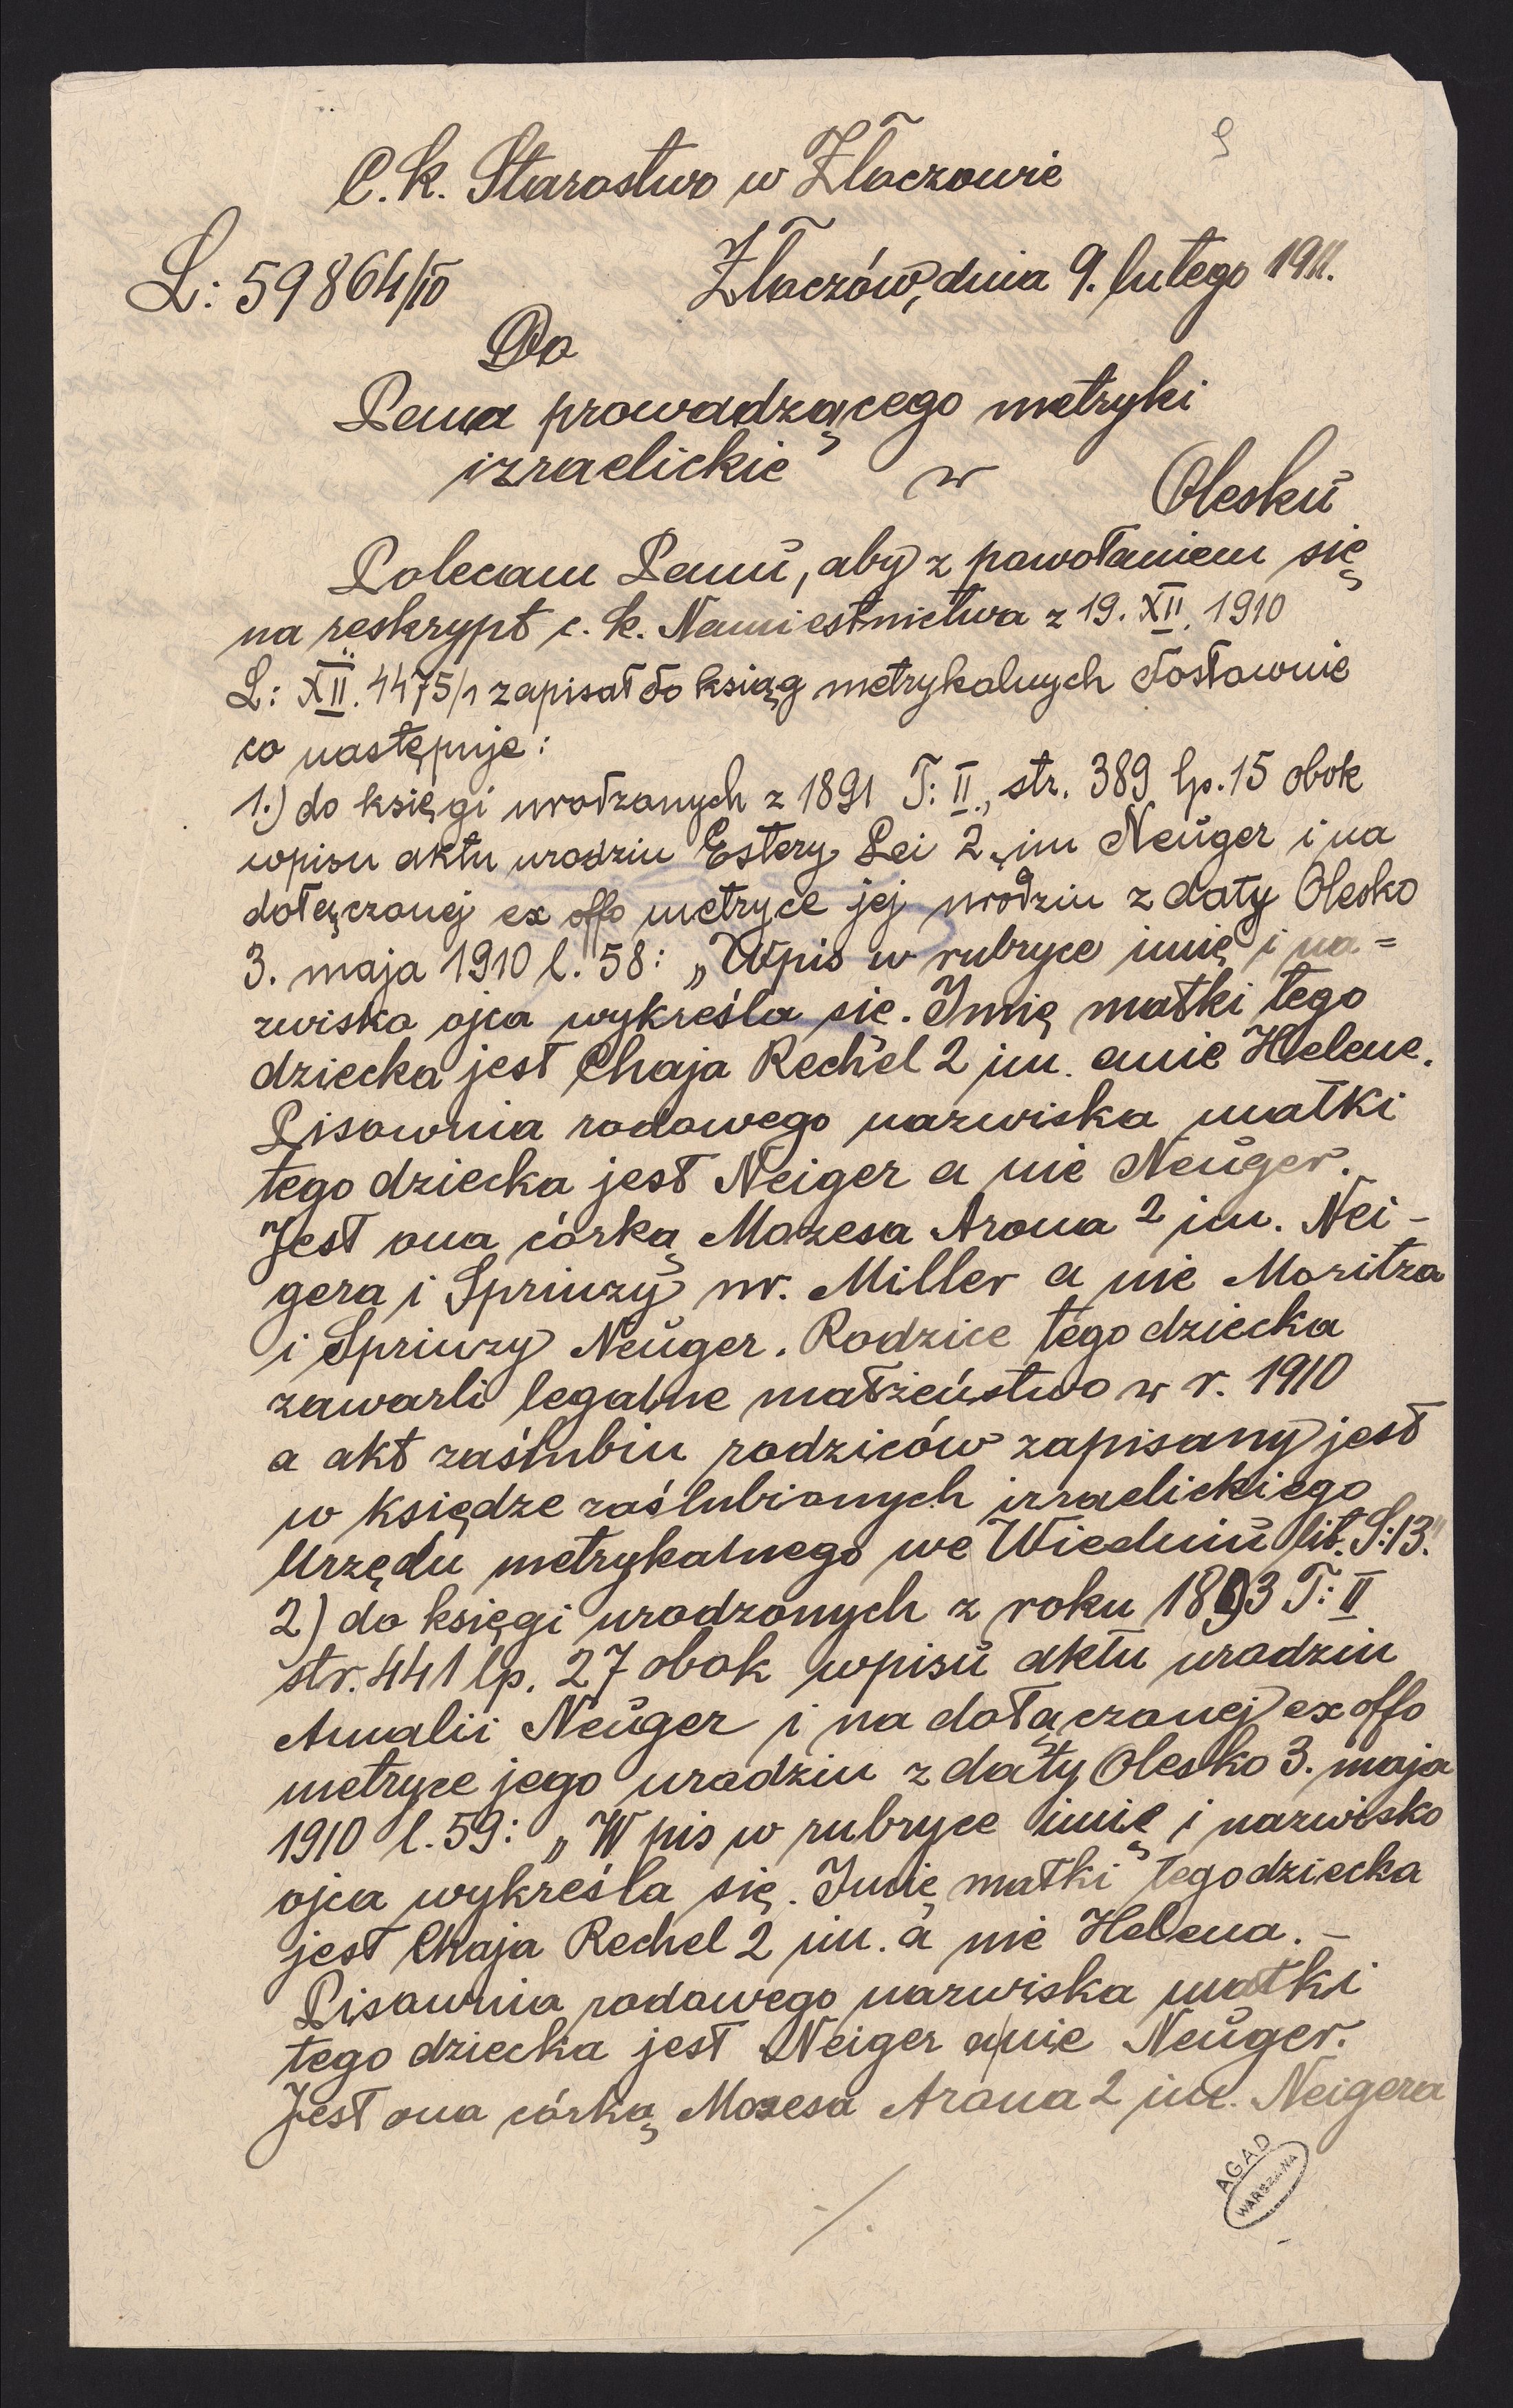 9
C. k. Starostwo w Złoczowie
L: 59864/10 Złoczów, dnia 9. lutego 1911.
Do
Pana prowadzącego metryki
izraelickie w Olesku
Polecam Panu, aby z powołaniem się
na reskrypt c. k. Namiestnictwa z 19. XII. 1910
L: XII. 4475/1 zapisał do ksiąg metrykalnych dosłownie
co następuje:
1.) do księgi urodzonych z 1891 T: II., str. 389 lp. 15 obok
wpisu aktu urodzin Estery Lei 2. im Neuger i na
dołączonej ex offo metryce jej urodzin z daty Olesko
3. maja 1910 l. 58: „Wpis w rubryce imię i na=
zwisko ojca wykreśla się. Imię matki tego
dziecka jest Chaja Rechel 2 im. a nie Helene.
Pisownia rodowego nazwiska matki
tego dziecka jest Neiger a nie Neuger.
Jest ona córką Mozesa Arona 2 im. Nei-
gera i Sprinzy nr. Miller a nie Moritza
i Sprinzy Neuger. Rodzice tego dziecka
zawarli legalne małżeństwo w r. 1910
a akt zaślubin rodziców zapisany jest
w księdze zaślubionych izraelickiego
Urzędu metrykalnego we Wiedniu lit. S:13."
2) do księgi urodzonych z roku 1893 T: II
str. 441 lp. 27 obok wpisu aktu urodzin
Amalii Neuger i na dołączonej ex offo
metryce jego urodzin z daty Olesko 3. maja
1910 l. 59: „Wpis w rubryce imię i nazwisko
ojca wykreśla się. Imię matki tego dziecka
jest Chaja Rechel 2 im. a nie Helena. –
Pisownia rodowego nazwiska matki
tego dziecka jest Neiger a nie Neuger.
Jest ona córką Mozesa Arona 2 im. Neigera
./.
AGAD
WARSZAWA